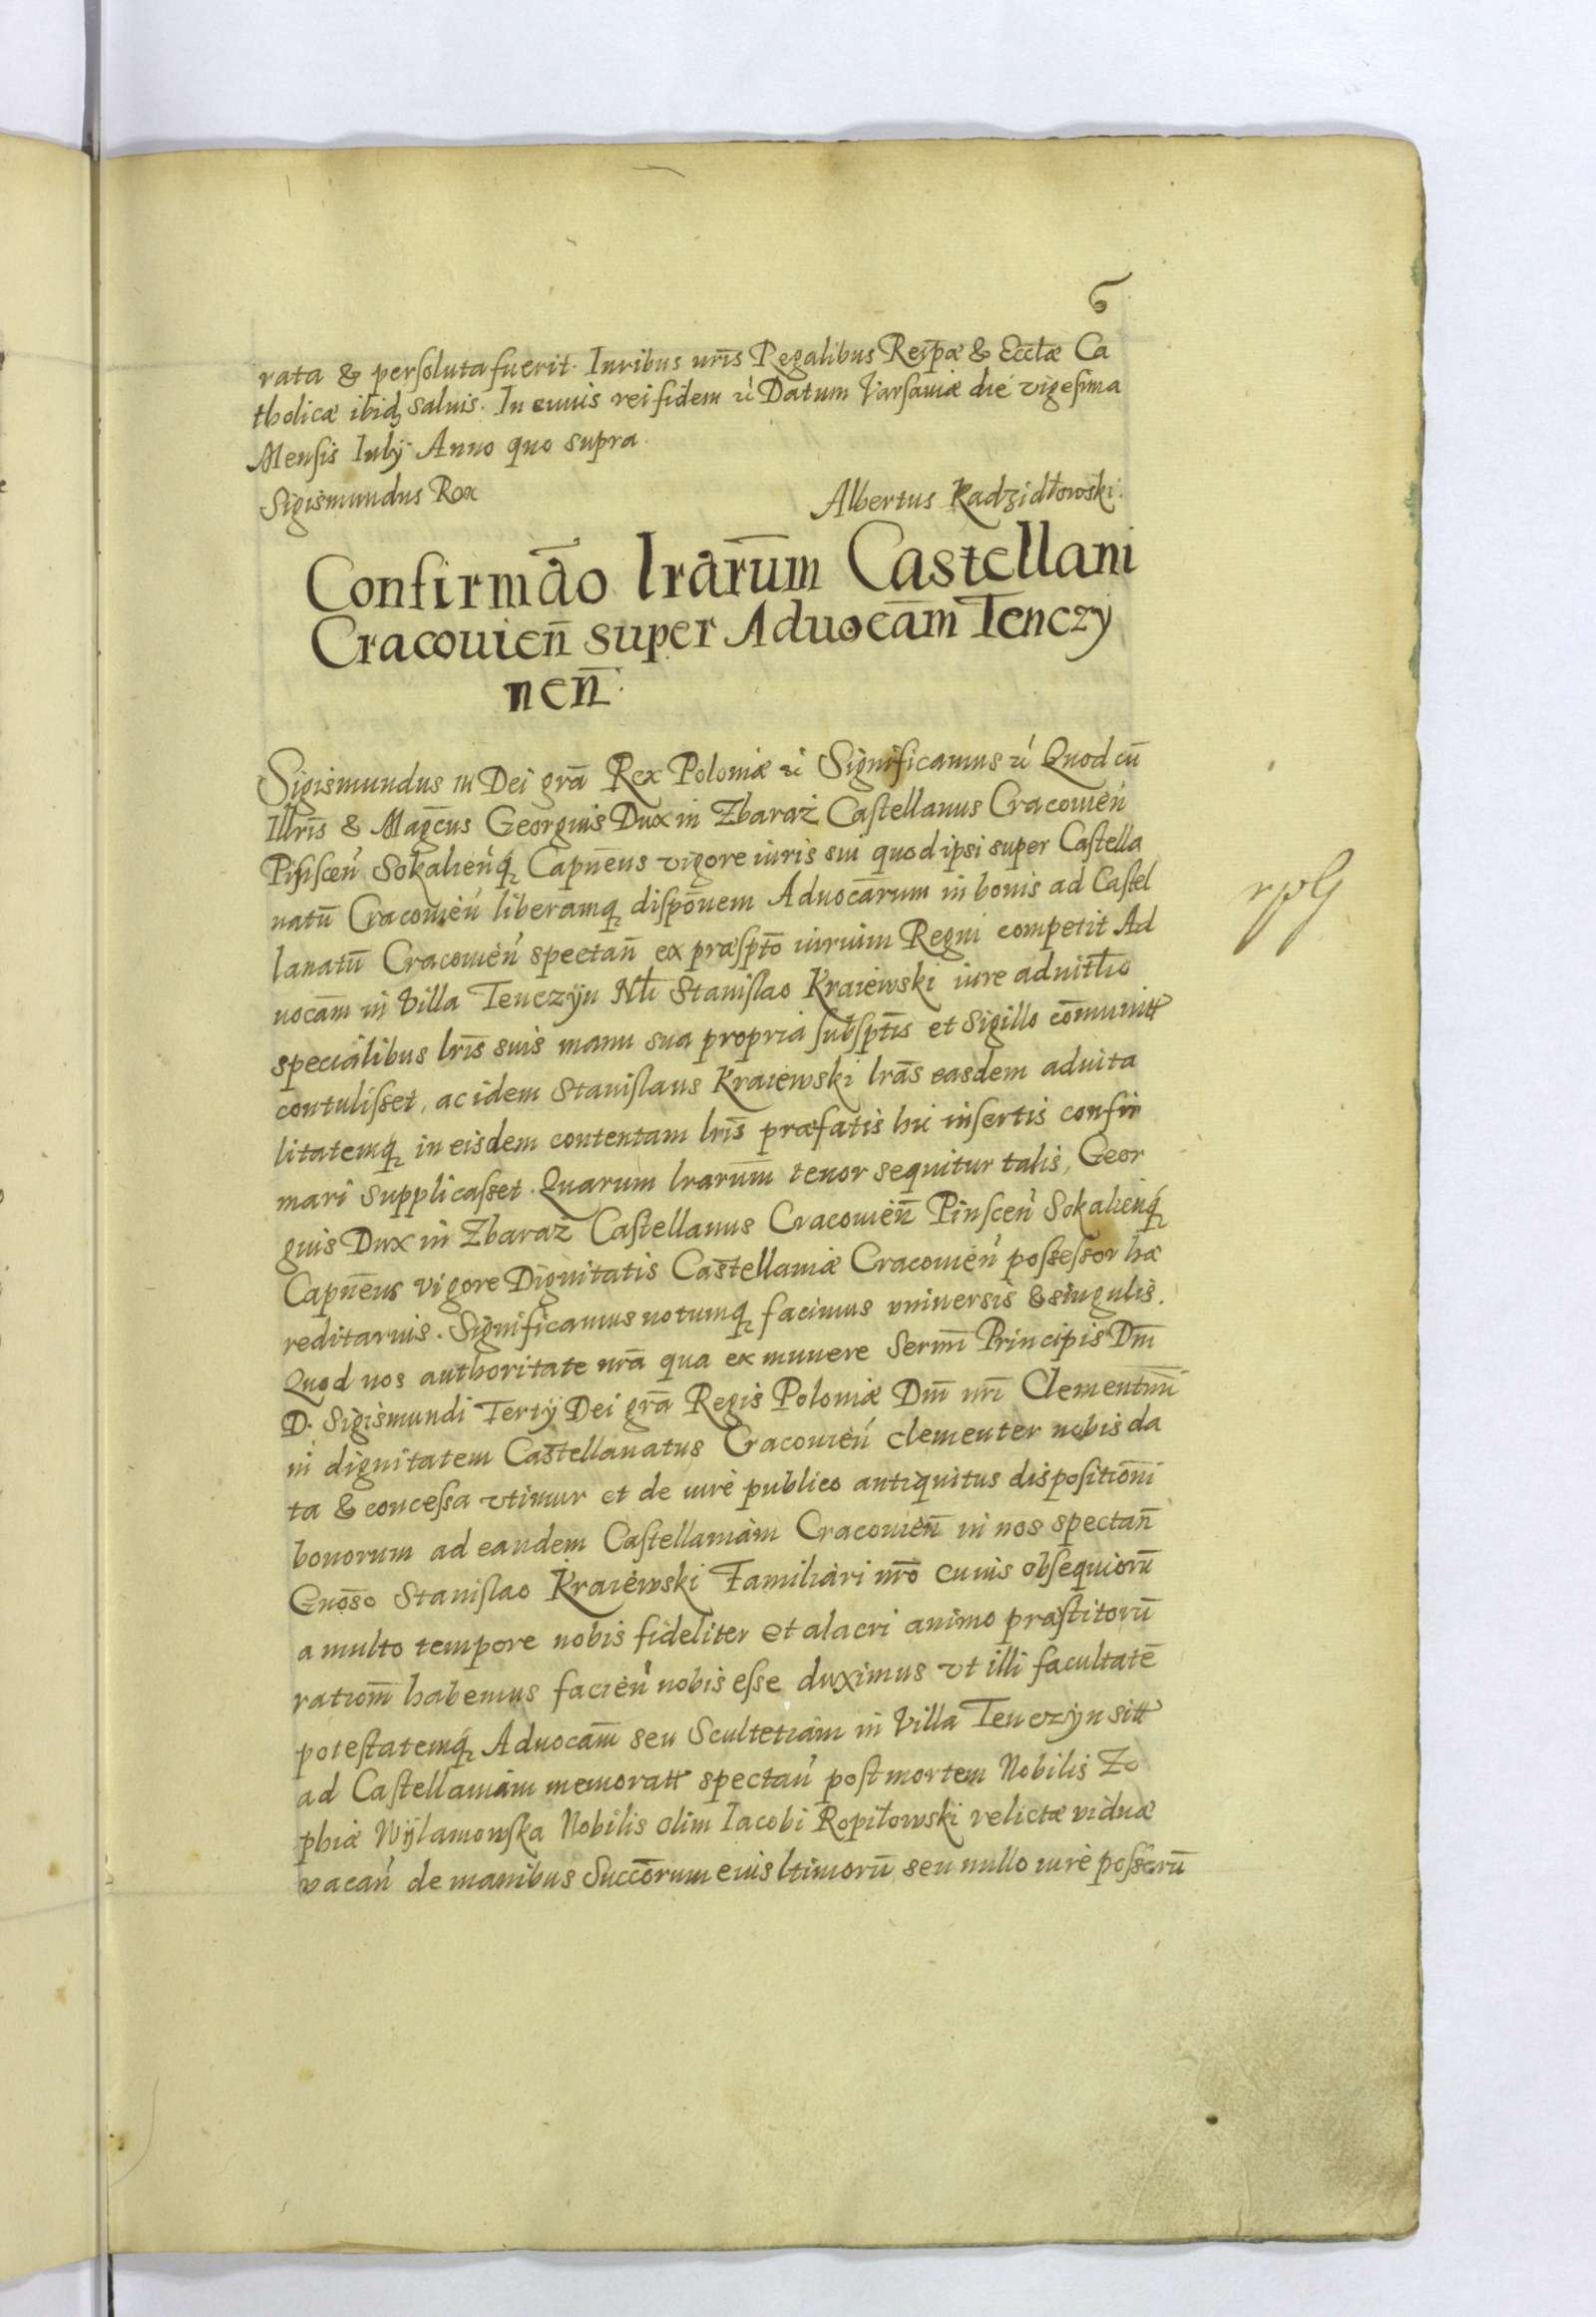 6
rata & persoluta fuerit. Iuribus nr̄is Regalibus Reip̄æ & Eccl̄æ Ca
tholicæ ibidꝫ saluis. In cuius rei fidem &c Datum Varsauiæ die vigesima
Mensis Iulÿ Anno quo supra.
Sigismundus Rex Albertus Radzidłowski.
Confirmāo lrārum Castellani
Cracouien̄ super Aduocām Tenczy
nen̄.
Sigismundus III Dei grā Rex Poloniæ &c Significamus &c Quod cū
Illr̄is & Magc̄us Georgius Dux in Zbaraż Castellanus Cracouien̄
Pinscen̄ Sokalien̄q Capnēus vigore iuris sui quod ipsi super Castella
natū Cracouien̄ liberamq dispōnem Aduocārum in bonis ad Castel
lanatū Cracouien̄ spectan̄ ex præsptō iurium Regni competit Ad
uocām in Villa Tenczÿn Nbl̄i Stanislao Kraiewski iure aduitl̄io
specialibus lr̄is suis manu sua propria subsptīs et Sigillo cōmunitt
contulisset, ac idem Stanislaus Kraiewski lrās easdem aduita
litatemq in eisdem contentam lr̄is præfatis hic insertis confir
mari supplicasset. Quarum lrarūm tenor sequitur talis, Geor
gius Dux in Zbaraż Castellanus Cracouien̄ Pinscen̄ Sokalien̄q
Capnēus vigore Dignitatis Castellaniæ Cracouien̄ possessor hæ
reditarius. Significamus notumq facimus vniuersis & singulis.
Quod nos authoritate nrā qua ex munere Sermī Principis Dm̄
D. Sigismundi Tertÿ Dei grā Regis Poloniæ Dm̄ nr̄i Clementmī
in dignitatem Castellanatus Cracouien̄ clementer nobis da
ta & concessa vtimur et de iure publico antiquitus dispositiōni
bonorum ad eandem Castellaniam Cracouien̄ in nos spectan̄
Gnōso Stanislao Kraiewski Familiari nr̄o cuius obsequiorū
a multo tempore nobis fideliter et alacri animo præstitorū
rationm̄ habemus facien̄ nobis esse duximus vt illi facultatē
potestatemq Aduocām seu Scultetiam in Villa Tenczÿn sitt
ad Castellaniam memoratt spectan̄ post mortem Nobilis Zo
phiæ Wÿlamowska Nobilis olim Iacobi Ropiłowski relictæ viduæ
vacan̄ de manibus Succōrum eius ltimorū seu nullo iure possorū